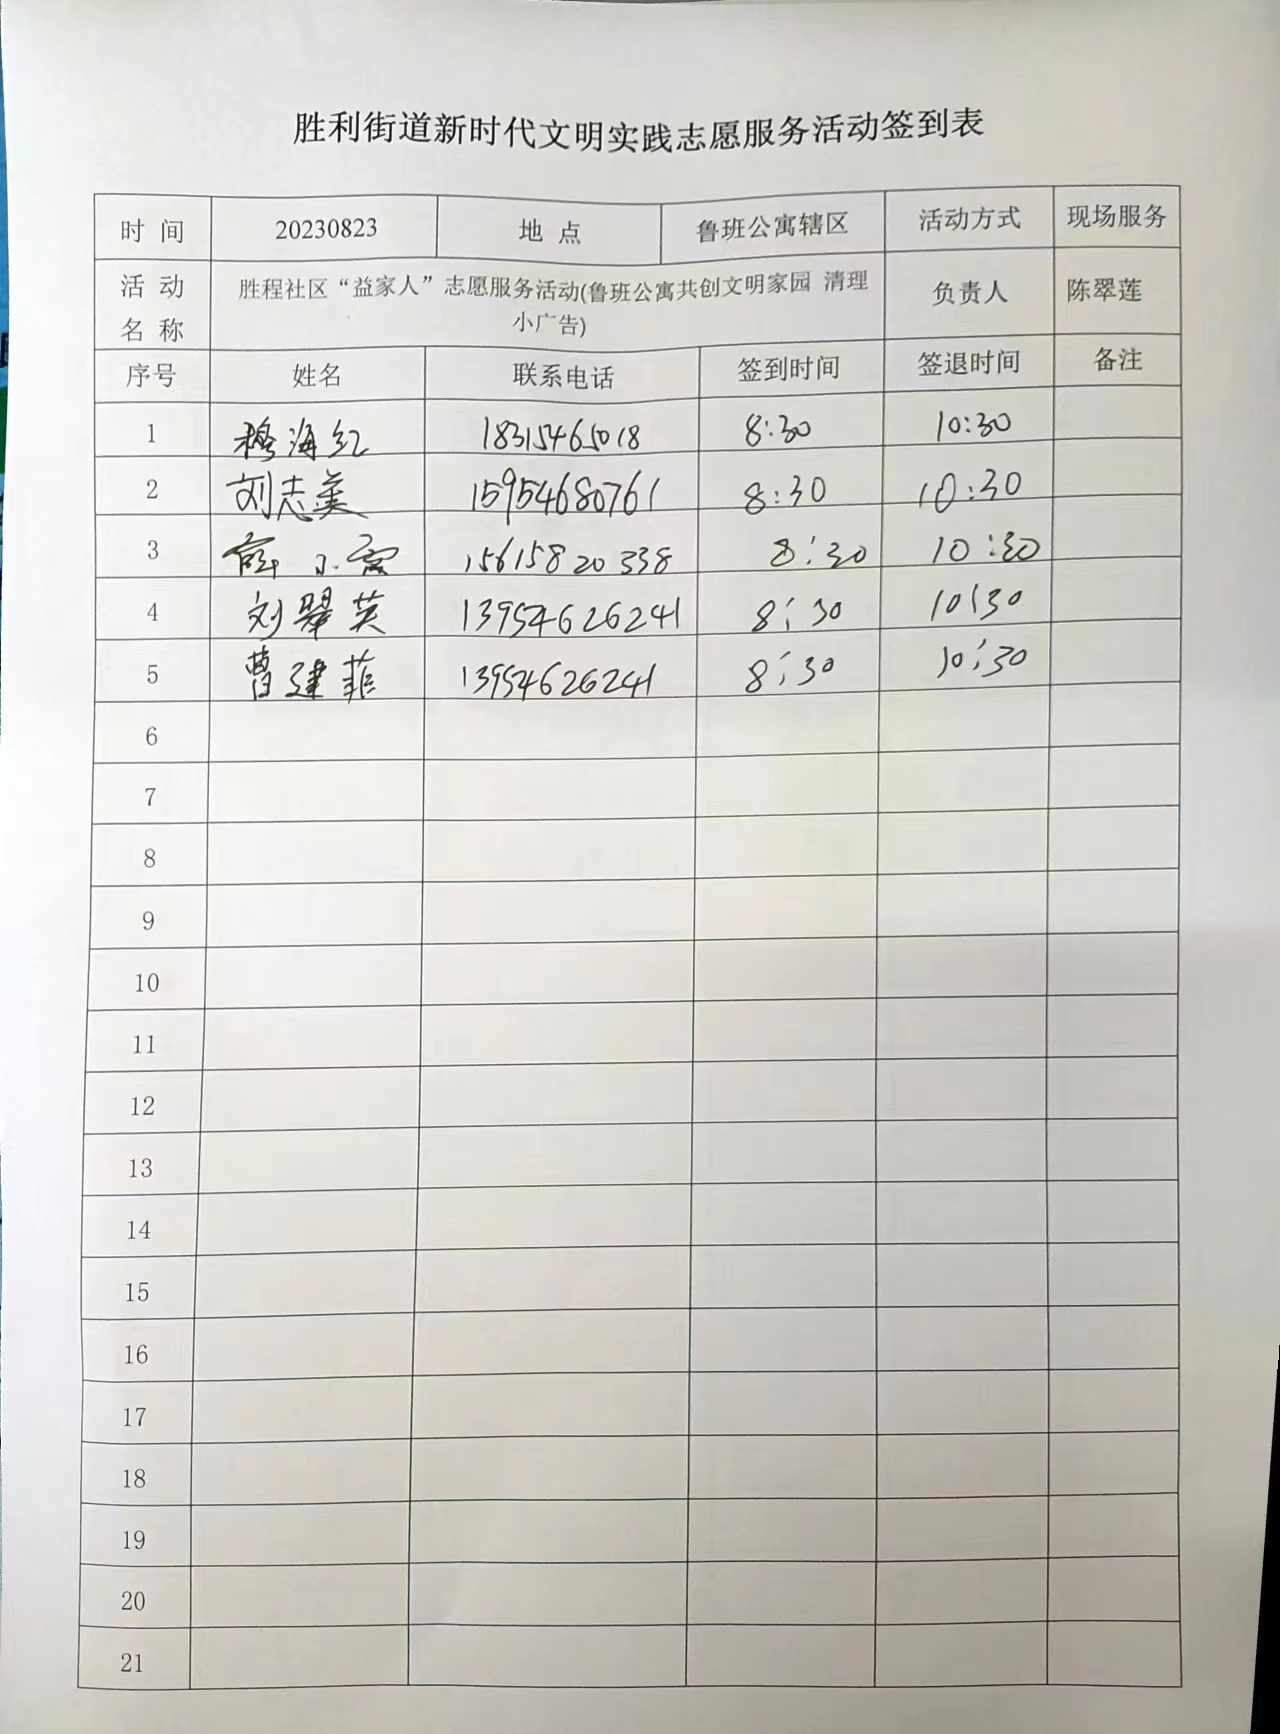 胜利街道新时代文明实践志愿服务活动签到表
时 间 20230823 地 点 鲁班公寓辖区 活动方式 现场服务
活 动 胜程社区“益家人”志愿服务活动(鲁班公寓共创文明家园 清理 负责人 陈翠莲
名 称 小广告)
序号 姓名 联系电话 签到时间 签退时间 备注
1 穆海红 18315465018 8:30 10:30
2 刘志美 15954680761 8:30 10:30
3 薛小霞 15615820338 8:30 10:30
4 刘翠英 13954626241 8:30 10:30
5 曹建菲 13954626241 8:30 10:30
6
7
8
9
10
11
12
13
14
15
16
17
18
19
20
21